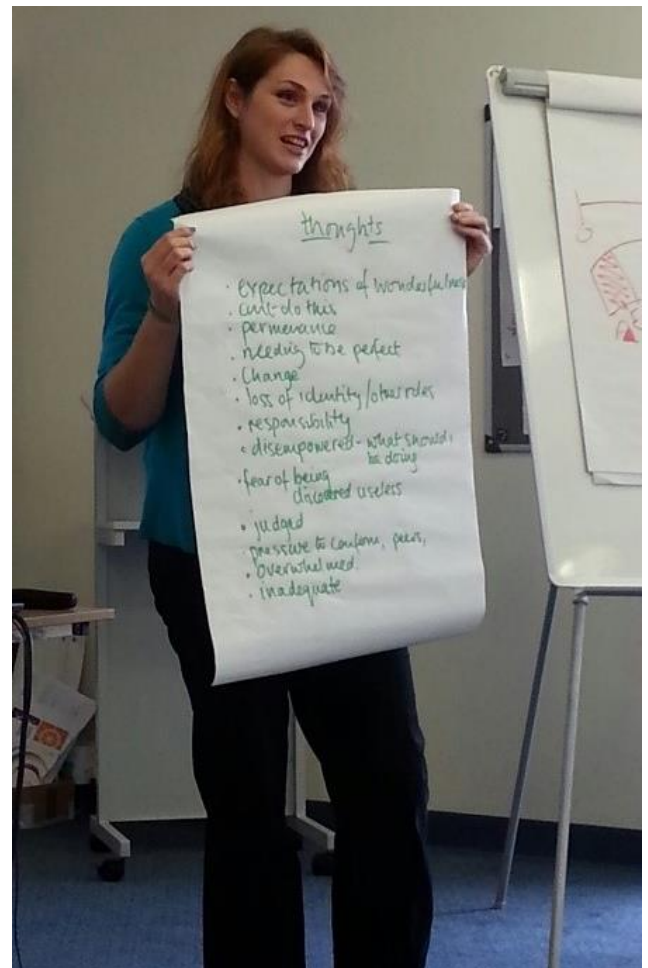 thoughts
· expectations of wonderfulness
· can't do this
· permenance
· needing to be perfect
· Change
· loss of identity/other roles
· responsibility
· disempowered - what should i
be doing
· fear of being
discovered useless
· judged
· pressure to conform, peers,
· overwhelmed
· inadequate